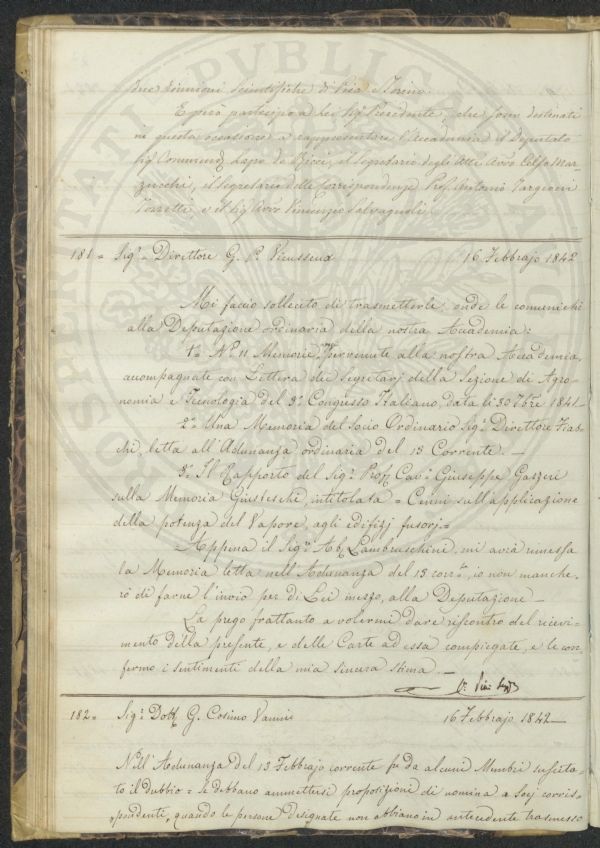 due riunioni Scientifiche di Pisa e Torino.
E però partecipo a Lei Sig. Presidente, che sono destinati
in questa occasione a rappresentare l'Accademia il Deputato
Sig. Lapo de Ricci, il Segretario degli Atti Avv. Celso Mar-
zucchi, il Segretario delle Corrispondenze Prof. Antonio Targioni
Tozzetti e il Sig. Avv. Vincenzo Salvagnoli.
181 = Sig.e Direttore G. P. Vieusseux 16 Febbrajo 1842
Mi faccio sollecito di trasmetterle, onde le comunichi
alla Deputazione ordinaria della nostra Accademia:
1.o N.o 11 Memorie pervenute alla nostra Accademia,
accompagnate con Lettera dei Segretarj della Sezione di Agro-
nomia e Tecnologia del 3.o Congresso Italiano, data li 30 7bre 1841 -
2.o Una Memoria del Socio Ordinario Sig.e Direttore Tab-
chi, letta all'Adunanza ordinaria del 13 Corrente. -
3.o Il Rapporto del Sig.e Prof. Cav.e Giuseppe Gazzeri
sulla Memoria Giusteschi, intitolata = Cenni sull'applicazione
della potenza del Vapore, agli edifizj fusorj. =
Appena il Sig.e Ab. Lambruschini mi avrà rimessa
la Memoria letta nell'Adunanza del 13 corr.e, io non manche-
rò di farne l'invio per di Lei mezzo, alla Deputazione -
La prego frattanto a volermi dare riscontro del ricevi-
mento della presente, e delle Carte ad essa compiegate, e le con-
fermo i sentimenti della mia sincera stima -
182 = Sig.e Dott. G. Cosimo Vannis 16 Febbrajo 1842 -
Nell'Adunanza del 13 Febbrajo corrente fu da alcuni Membri suscita-
to il dubbio = se debbano ammettersi proposizioni di nomina a Socj corris-
pondenti, quando le persone designate non abbiano in antecedente trasmesso